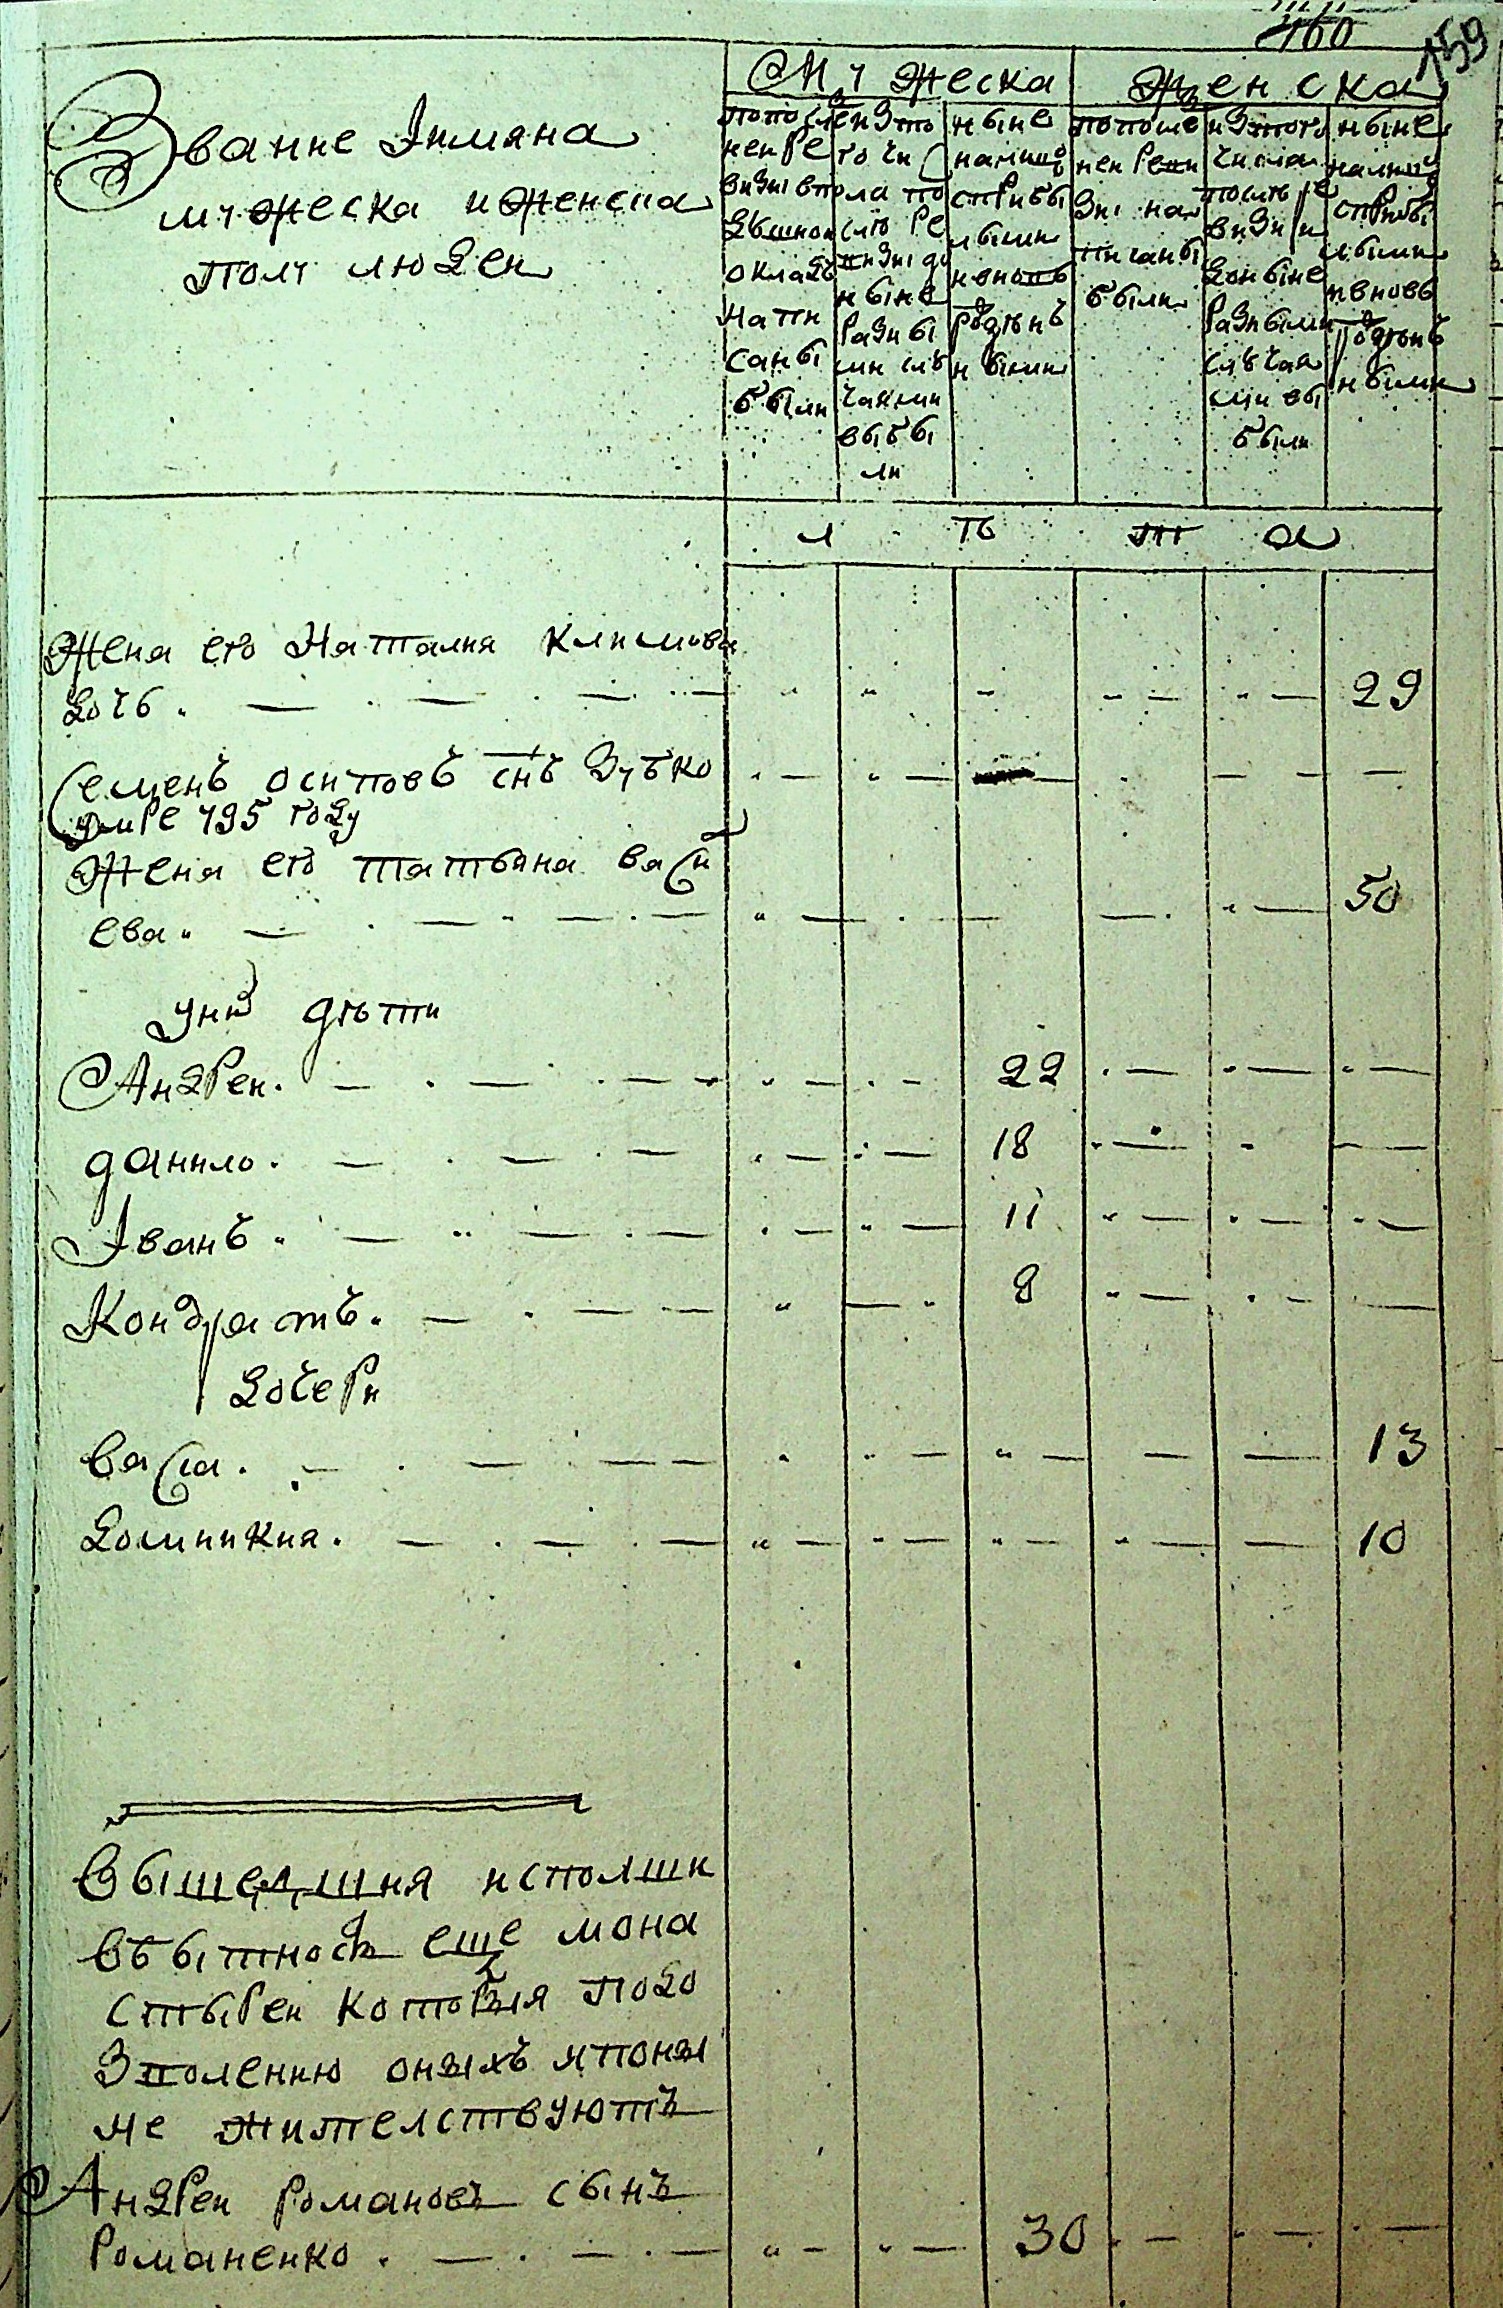 460
159
Звание Iимяна
мужеска иженска
полу людей
Мужеска
Женска
попосле
ней ре
визиі вто
дѣшной
окладъ
напи
саны
были
изто
го чи
сла по
слѣ ре
визиі до
ныне
разны
ми слу
чаями
выбы
ли
ныне
налицо
сприбы
лыми
ивновь
рожден
ными
попосле
ней реви
зиі на
писаны
были
изтого
числа
послѣ ре
визиі и
доныне
разными
случая
ми вы
были
ныне
налицо
сприбы
лыми
ивновь
рожден
ными
л ѣ т а
Жена его Наталия Климова
дочь 29
Семенъ осиповъ снъ Зубко
умре 795 году
Жена его татьяна васи
ева 50
уних дѣти
Андрей 22
данило 18
Iванъ 11
Кондратъ 8
дочери
васса 13
домникия 10
Вышедшия исполши
вбытность еще мона
стырей которыя подо
зволению оныхъ употы
не жителствуютъ
Андрей романовъ сынъ
романенко 30